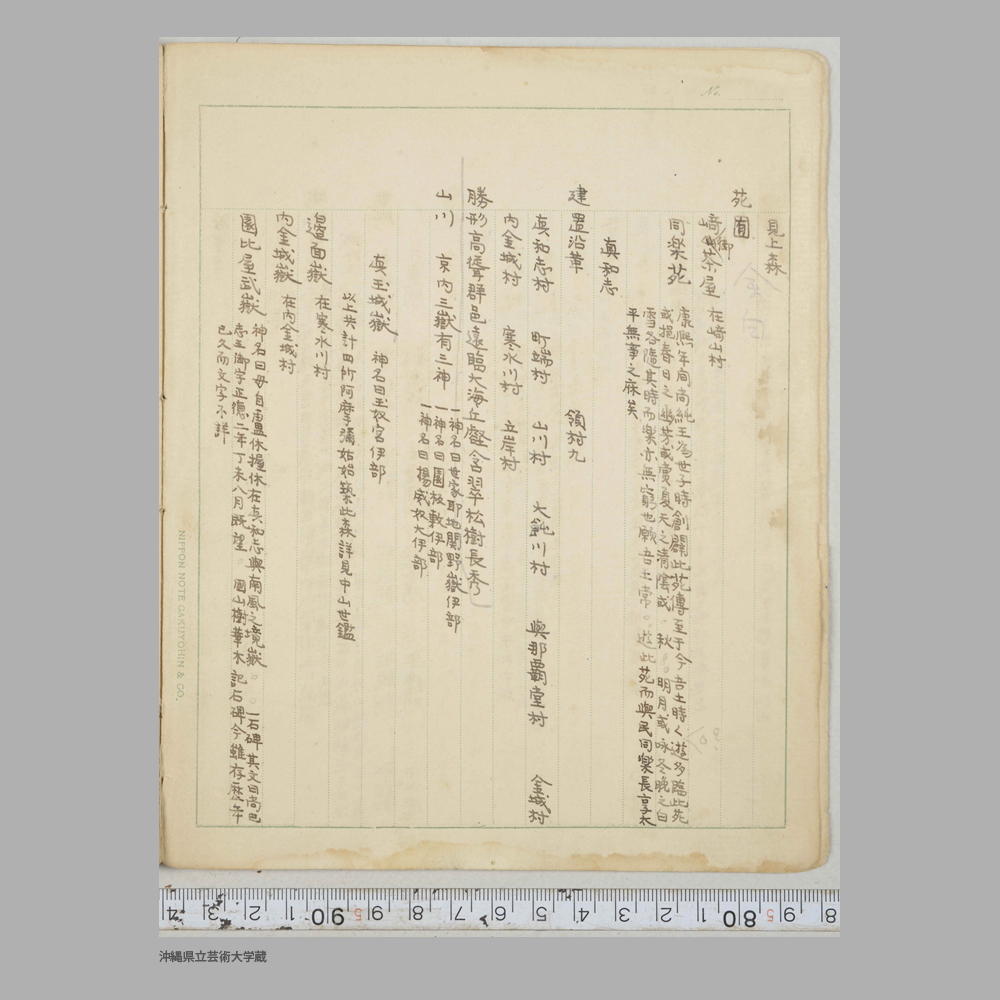 No.
見上森
苑囿
崎山御茶屋 在崎山村
同楽苑 康熙年间尚純王為世子時創闢此苑傳至于今吾王時々遊多臨此苑
或挹春日之幽芳或賣夏天之清陰或。秋。。明月或咏冬晚之白
雪各隨其時而楽亦無窮也願吾王常。。遊此苑而與民同楽長享太
平無事之庥矣
真和志
建置沿革 領村九
真和志村 町端村 山川村 大鈍川村 與那覇堂村 金城村
内金城村 寒水川村 立岸村
勝形高聳群邑遠臨大海丘壑含翠松樹長秀
山川 京内三嶽有三神 一神名曰世家耶地関野嶽伊部
一神名曰園板敷伊部
一神名曰揚威奴大伊部
真玉城嶽 神名曰玉奴宮伊部
以上共計四所阿摩彌姑始築此森詳見中山世鑑
邊面嶽 在寒水川村
内金城嶽 在内金城村
園比屋武嶽 神名曰毋自盧休握休在真和志與南風之境嶽。。一石碑其文曰尚巴
志王御宇正德二年丁未八月既望 國山樹華木記石碑今雖存歷年
已久而文字不詳
NIPPON NOTE GAKUYOHIN & CO.
4 3 2 1 90 9 8 7 6 5 4 3 2 1 80 9 8
沖縄県立芸術大学蔵